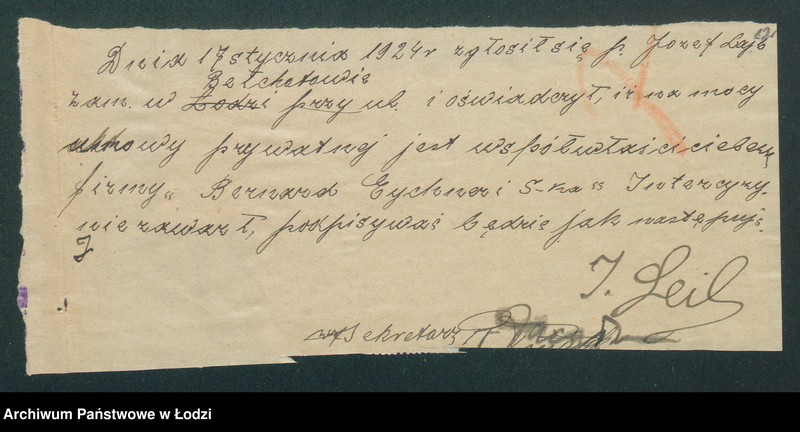 Dnia 17 stycznia 1924 r zgłosił się p. Jozef Lejb
Bełchatowie
zam. w Łodzi przy ul. i oświadczył, iż na mocy
umowy prywatnej jest współwłaścicielem
firmy „Bernard Eychner i S-ka" Intercyzy
nie zawarł, podpisywać będzie jak następuje.
J. Leib
Sekretarz
Archiwum Państwowe w Łodzi